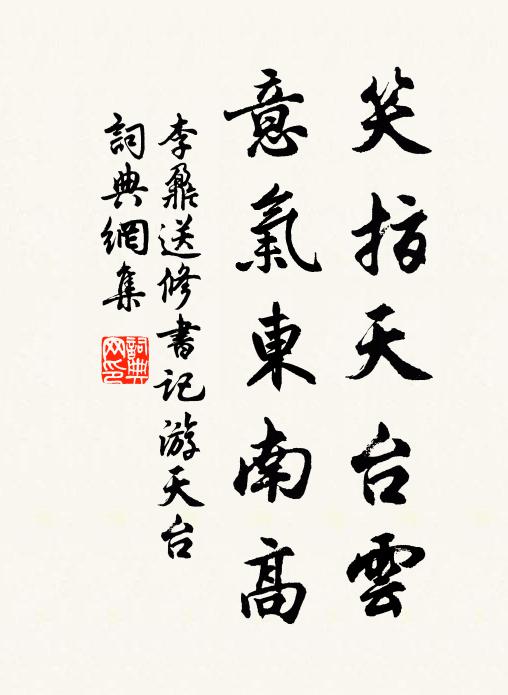 笑指天台雲
意氣東南高
李鼐送修書記游天台
詞典網集
詞典網印